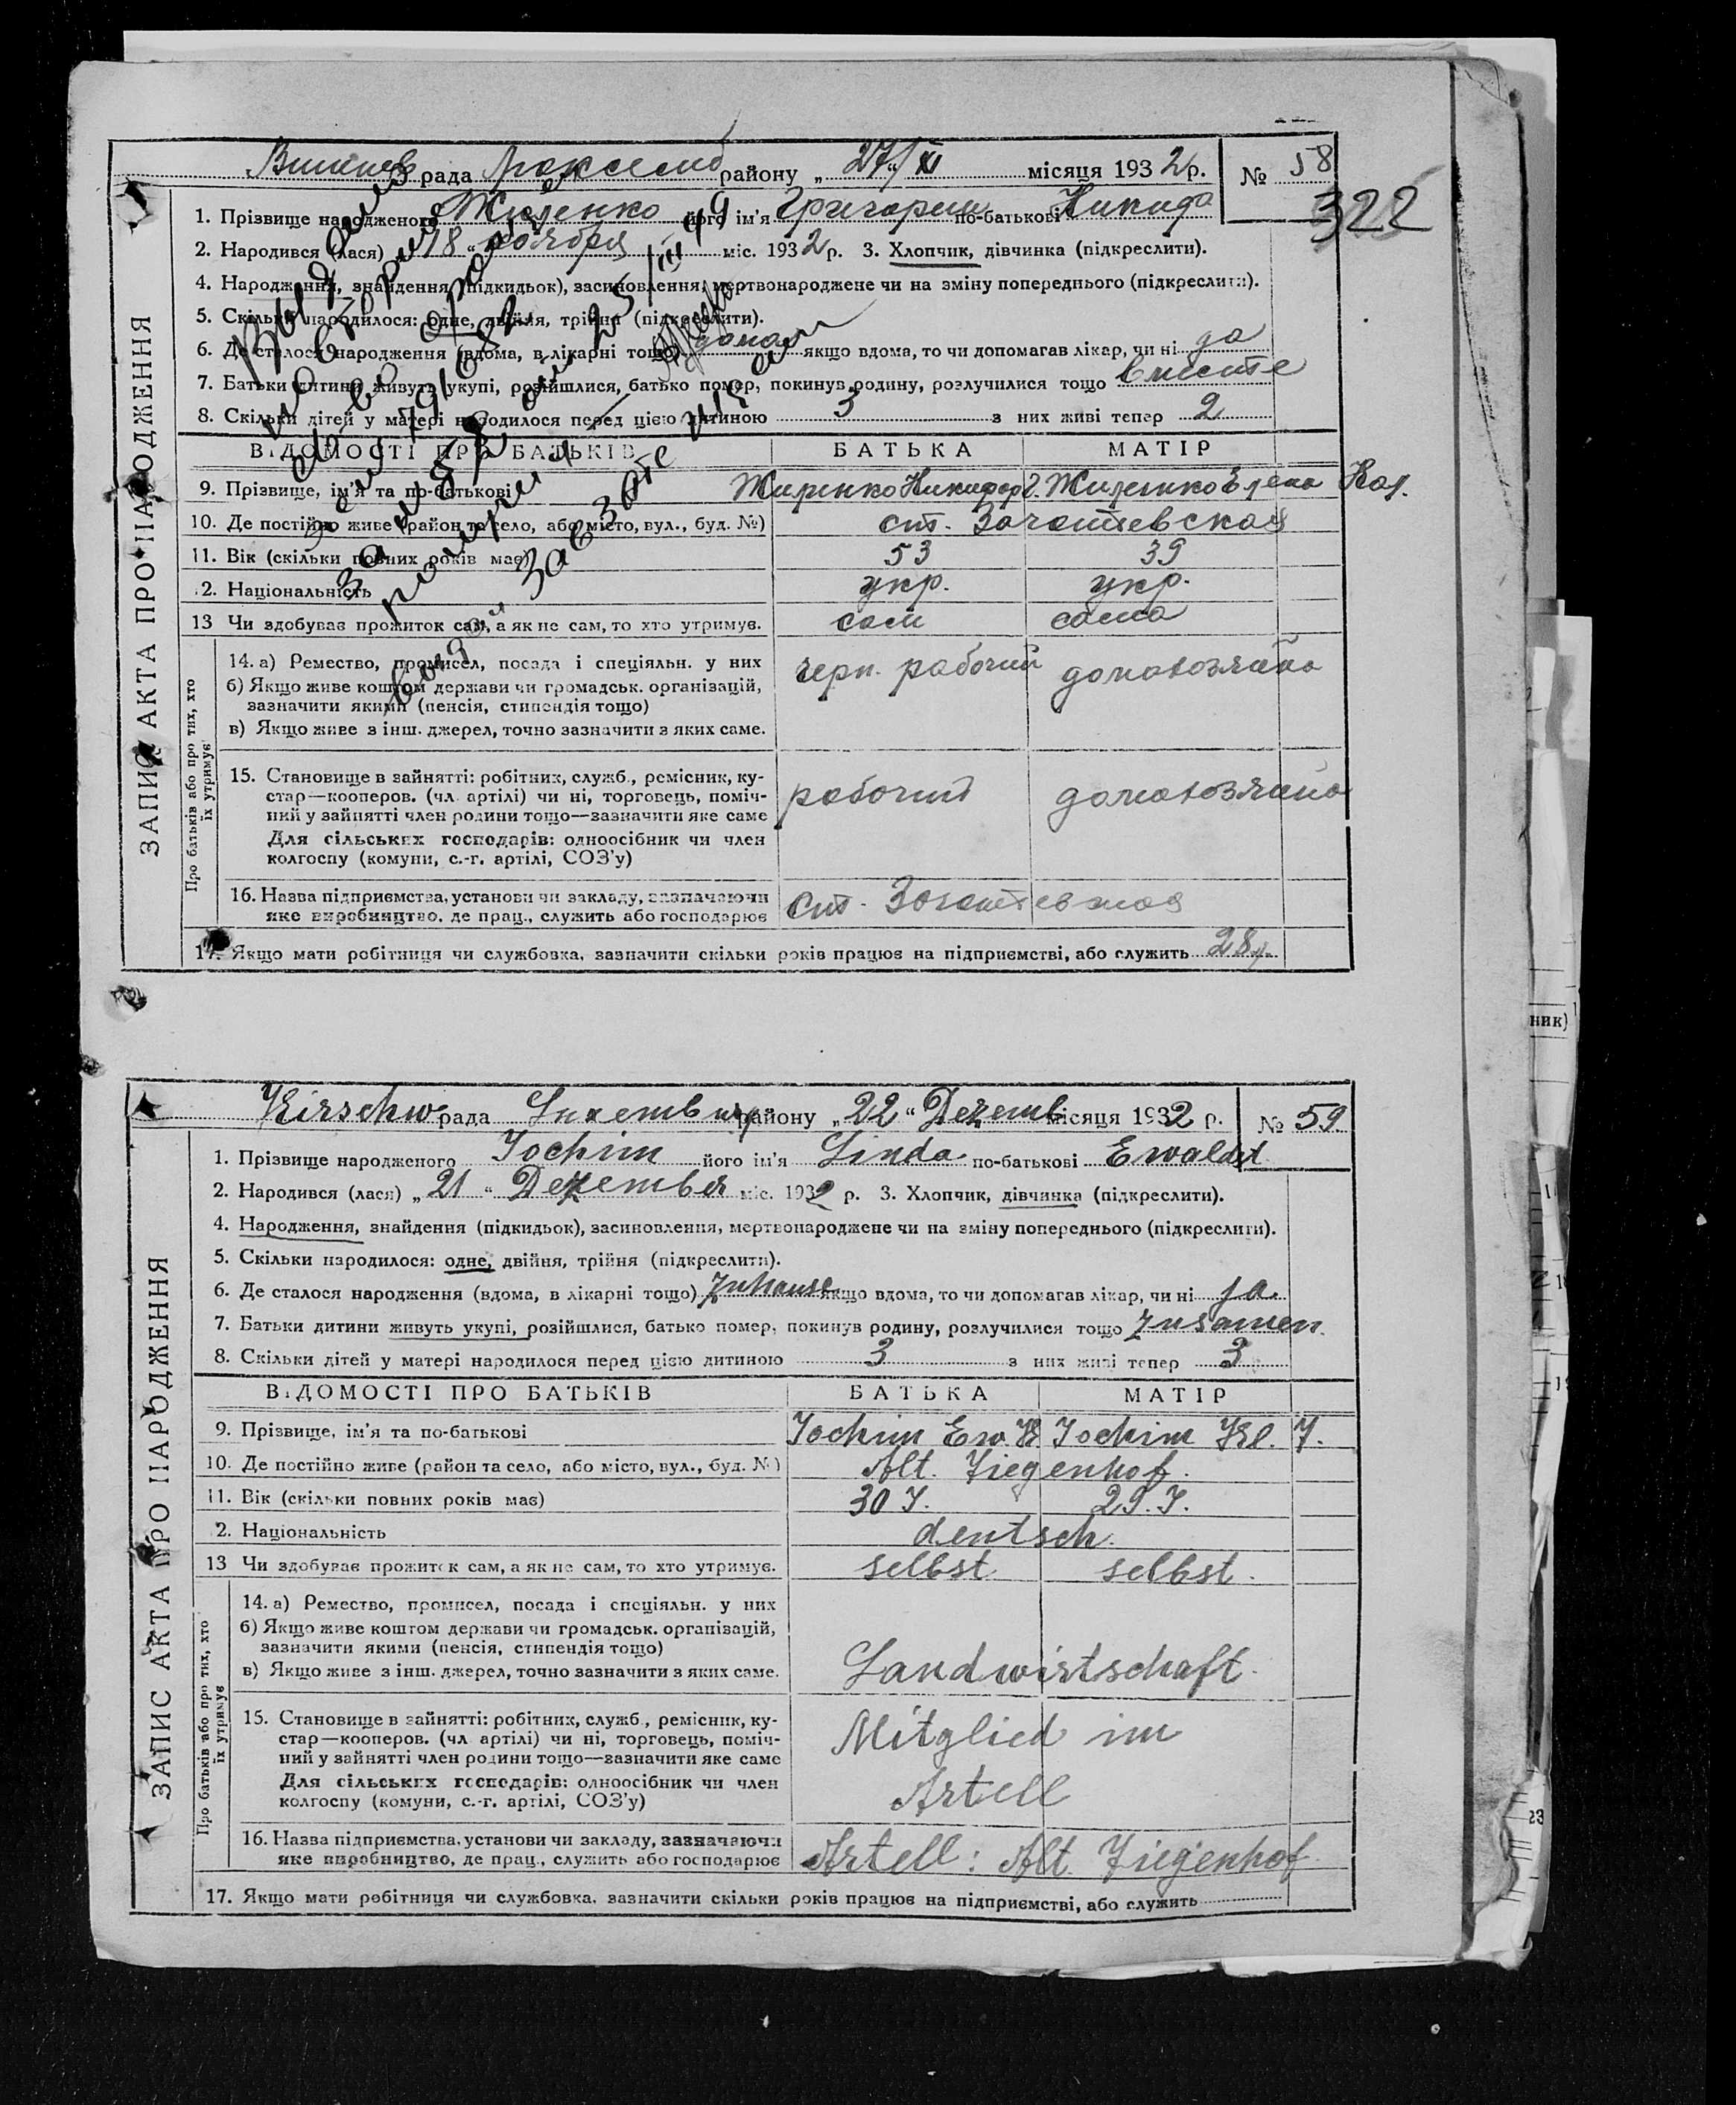 Вишнев рада Люксемб району „ 27/XI місяця 1932 р. № 58
322
1. Прізвище народженого Жиленко його ім'я Григорий по-батькові Никифо
2. Народився (лася) „ 18 “ ноября міс. 1932 р. 3. Хлопчик, дівчинка (підкреслити).
4. Народження, знайдення (підкидьок), засиновлення, мертвонароджене чи на зміну попереднього (підкреслити).
5. Скільки народилося: одне, двійня, трійня (підкреслити).
6. Де сталося народження (вдома, в лікарні тощо) дома якщо вдома, то чи допомагав лікар, чи ні да
7. Батьки дитини живуть укупі, розійшлися, батько помер, покинув родину, розлучилися тощо вместе
8. Скільки дітей у матері народилося перед цією дитиною 3 з них живі тепер 2
ВІДОМОСТІ ПРО БАТЬКІВ БАТЬКА МАТІР
9. Прізвище, ім'я та по-батькові Жиленко Никифор Г. Жиленко Елена Кал.
10. Де постійно живе (район та село, або місто, вул., буд. №) ст.
11. Вік (скільки повних років має) 53 39
12. Національність укр. укр.
13 Чи здобуває прожиток сам, а як не сам, то хто утримує. сам сама
14. а) Ремество, промисел, посада і спеціяльн. у них черн. рабочий домохозяйка
б) Якщо живе коштом держави чи громадськ. організацій,
зазначити якими (пенсія, стипендія тощо)
в) Якщо живе з інш. джерел, точно зазначити з яких саме.
15. Становище в зайнятті: робітник, служб., ремісник, ку-
стар—кооперов. (чл. артілі) чи ні, торговець, поміч- рабочий домохозяйка
ний у зайнятті член родини тощо—зазначити яке саме
Для сільських господарів: одноосібник чи член
колгоспу (комуни, с.-г. артілі, СОЗ'у)
16. Назва підприємства, установи чи закладу, зазначаючи
яке виробництво, де прац., служить або господарює ст.
17. Якщо мати робітниця чи службовка, зазначити скільки років працює на підприємстві, або служить
Про батьків або про тих, хто
їх утримує
ЗАПИС АКТА ПРО НАРОДЖЕННЯ
Kirschw рада Luxemburg району „ 22 “ Dezemb місяця 1932 р. № 59
1. Прізвище народженого Jochim його ім'я Linda по-батькові Ewaldt
2. Народився (лася) „ 21 “ Dezember міс. 1932 р. 3. Хлопчик, дівчинка (підкреслити).
4. Народження, знайдення (підкидьок), засиновлення, мертвонароджене чи на зміну попереднього (підкреслити).
5. Скільки народилося: одне, двійня, трійня (підкреслити).
6. Де сталося народження (вдома, в лікарні тощо) Zuhause якщо вдома, то чи допомагав лікар, чи ні ja.
7. Батьки дитини живуть укупі, розійшлися, батько помер, покинув родину, розлучилися тощо Zusamen.
8. Скільки дітей у матері народилося перед цією дитиною 3 з них живі тепер 3
ВІДОМОСТІ ПРО БАТЬКІВ БАТЬКА МАТІР
9. Прізвище, ім'я та по-батькові Jochim Ew. Jochim J.
10. Де постійно живе (район та село, або місто, вул., буд. №) Alt. Ziegenhof.
11. Вік (скільки повних років має) 30 J. 29. J.
12. Національність deutsch.
13 Чи здобуває прожиток сам, а як не сам, то хто утримує. selbst selbst.
14. а) Ремество, промисел, посада і спеціяльн. у них
б) Якщо живе коштом держави чи громадськ. організацій,
зазначити якими (пенсія, стипендія тощо)
в) Якщо живе з інш. джерел, точно зазначити з яких саме. Landwirtschaft.
15. Становище в зайнятті: робітник, служб., ремісник, ку-
стар—кооперов. (чл артілі) чи ні, торговець, поміч- Mitglied im
ний у зайнятті член родини тощо—зазначити яке саме
Для сільських господарів: одноосібник чи член Artell
колгоспу (комуни, с.-г. артілі, СОЗ'у)
16. Назва підприємства, установи чи закладу, зазначаючи
яке виробництво, де прац., служить або господарює Artell: Alt. Ziegenhof
17. Якщо мати робітниця чи службовка, зазначити скільки років працює на підприємстві, або служить
Про батьків або про тих, хто
їх утримує
ЗАПИС АКТА ПРО НАРОДЖЕННЯ
ник)
23